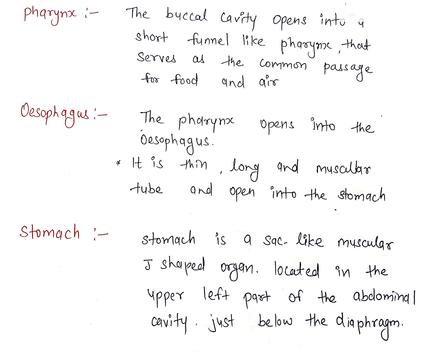 pharynx :- The buccal cavity opens into a
short funnel like pharynx, that
serves as the common passage
for food and air
Oesophagus:- The pharynx opens into the
Oesophagus.
* It is thin, long and muscular
tube and open into the stomach
Stomach :- stomach is a sac-like muscular
J shaped organ. located in the
upper left part of the abdominal
cavity. just below the diaphragm.